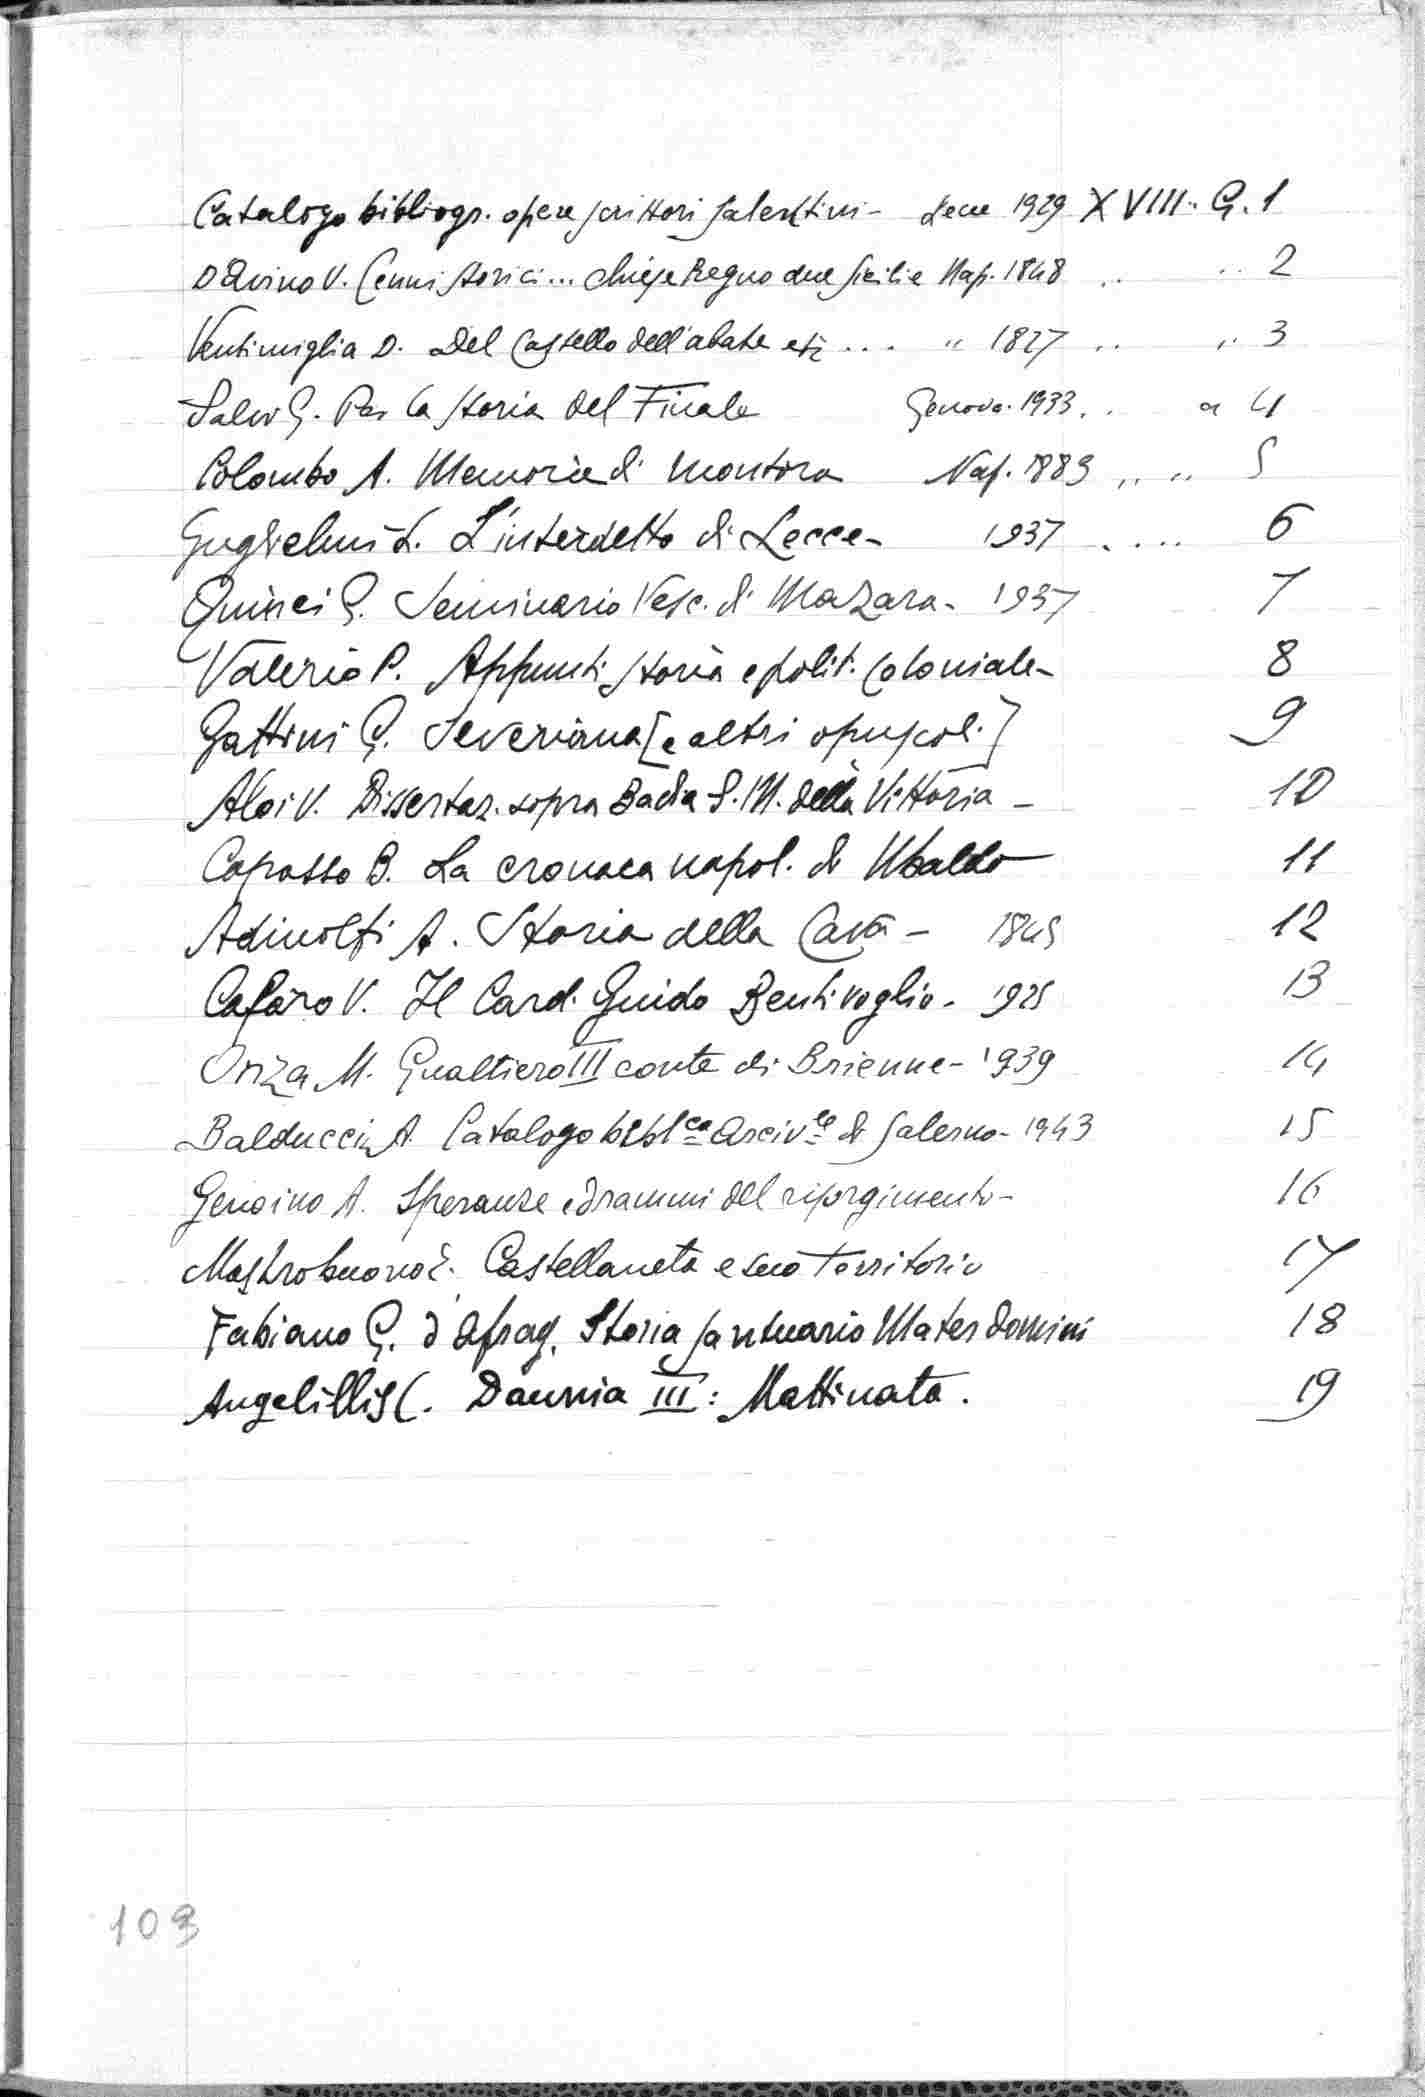 Catalogo bibliogr. opere scrittori salentini - Lecce 1929 XVIII. G. 1
D'Avino V. Cenni storici... chiese Regno due Sicilie Nap. 1848 .. .. 2
Ventimiglia D. Del Castello dell'abate etc ... " 1827 .. .. 3
Salvi G. Per la storia del Finale Genova. 1933 .. " 4
Colombo A. Memorie di Montoro Nap. 1883 .. .. 5
Guglielmi L. L'interdetto di Lecce - 1937 .... 6
Quinci G. Seminario Vesc. di Mazara - 1937 7
Valerio P. Appunti storia e polit. coloniale - 8
Gattini G. Severiana [e altri opuscol.] 9
Aloi V. Dissertaz. sopra Badia S. M. della Vittoria - 10
Capasso B. La cronaca napol. di Ubaldo - 11
Adinolfi A. Storia della Cava - 1845 12
Cafaro V. Il Card. Guido Bentivoglio - 1925 13
Onza M. Gualtiero III conte di Brienne - 1939 14
Balducci A. Catalogo bibl.ca Arciv.le di Salerno - 1943 15
Genoino A. Speranze e drammi del risorgimento - 16
Mastrobuono E. Castellaneta e suo territorio 17
Fabiano G. d'Afrag. Storia santuario Mater Domini 18
Angelillis C. Daunia III: Mattinata. 19
103